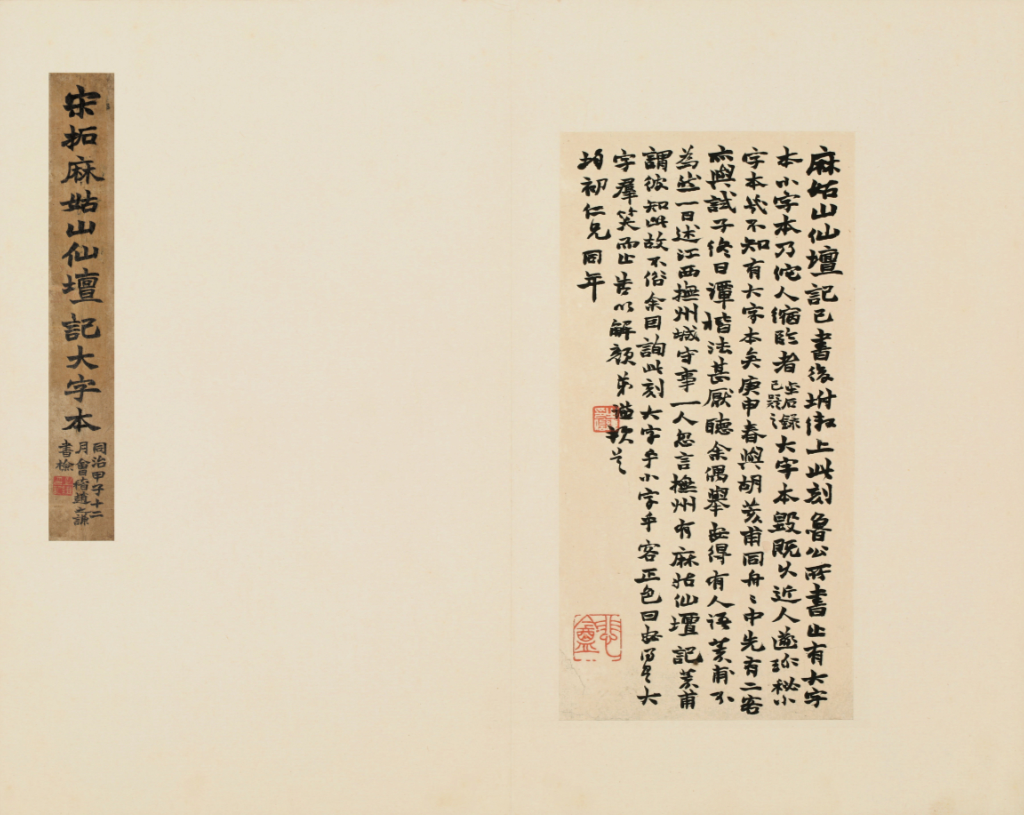 麻姑山仙壇記已書後坿上此刻魯公所書止有大字
本小字本乃佗人縮臨者金石錄已疑之大字本毀既久近人遂珍秘小
字本幾不知有大字本矣庚申春與胡荄甫同舟〻中先有二客
亦與試子終日譚楷法甚厭聽余偶舉安得有人語荄甫不
為然一日述江西撫州城守事一人忽言撫州有麻姑仙壇記荄甫
謂彼知此故不俗余因詢此刻大字乎小字乎客正色曰安得是大
字羣笑而止書以解顏弟謙頓首
均初仁兄同年
悲盦
宋拓麻姑山仙壇記大字本
同治甲子十二
月會稽趙之謙
書檢